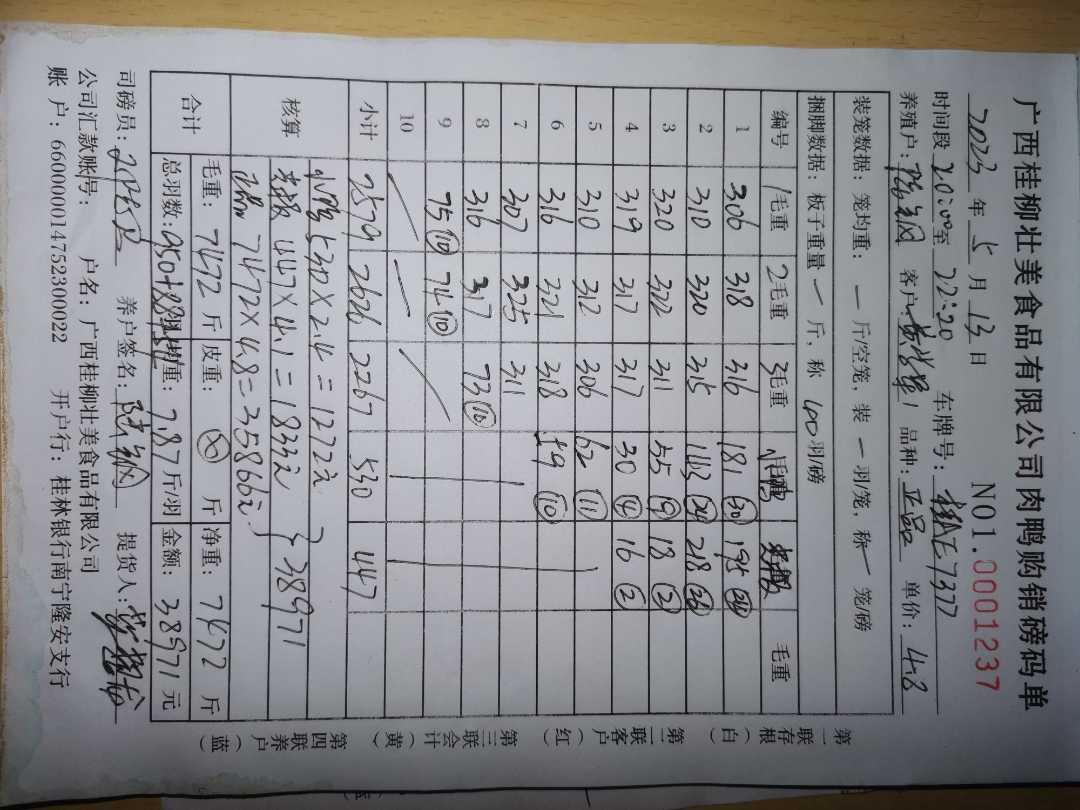 广西桂柳壮美食品有限公司肉鸭购销磅码单
NO1.0001237
2023 年 5 月 13 日
时间段 20:00 至 22:20 车牌号: 桂AE7377
养殖户: 客户: 品种: 正品 单价: 4.8
装笼数据: 笼均重: 一 斤/空笼, 装 一 羽/笼, 称 一 笼/磅
捆脚数据: 板子重量 一 斤, 称 100 羽/磅
编号 1毛重 2毛重 3毛重 小鸭 老报 毛重
1 306 318 316 181 (30) 195 (24)
2 310 320 315 143 (24) 218 (26)
3 320 322 311 55 (9) 18 (2)
4 319 317 317 30 (4) 16 (2)
5 310 312 306 62 (11)
6 316 321 318 59 (10)
7 307 325 311
8 316 317 73 (10)
9 75 (10) 74 (10)
10
小计 2579 2626 2267 530 447
核算
小鸭 530×2.4=1272元
老报 447×4.1=1833元
7472×4.8=35866元
}38971
合计 毛重: 7472 斤 皮重: 斤 净重: 7472 斤
总羽数: 均重: 7.87 斤/羽 金额: 38971 元
司磅员: 养户签名: 提货人:
公司汇款账号: 户名: 广西桂柳壮美食品有限公司
账 户: 660000014752300022 开户行: 桂林银行南宁隆安支行
第一联存根(白)
第二联客户(红)
第三联会计(黄)
第四联养户(蓝)